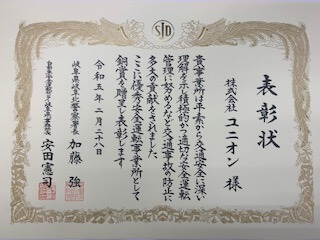 SJD
表彰状
株式会社 ユニオン 様
貴事業所は平素から交通安全に深い
理解を示し積極的かつ適切な安全運転
管理に努めるなど交通事故の防止に
多大の貢献をされました
ここに優秀安全運転事業所として
銅賞を贈呈し表彰します
令和五年二月二十八日
岐阜県岐阜北警察署長 加藤 強
自動車安全運転センター岐阜県事務所長 安田憲司